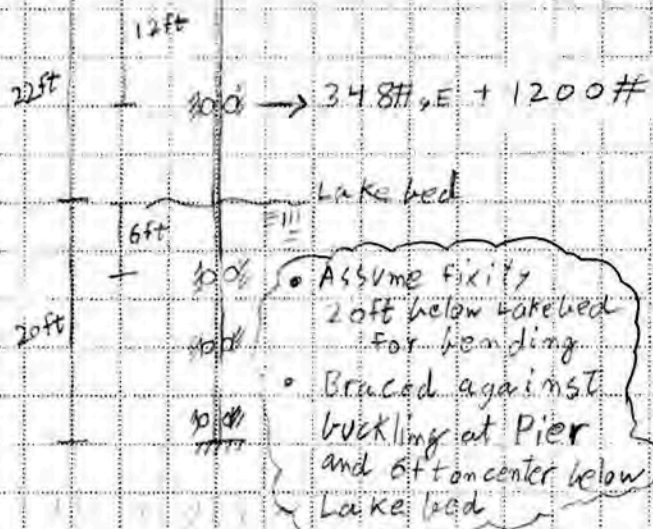 12ft
22ft
→ 348#,E + 1200#
Lake bed
6ft
20ft
• Assume fixity
20ft below Lakebed
for bending
• Braced against
buckling at Pier
and 6ft on center below
Lake bed